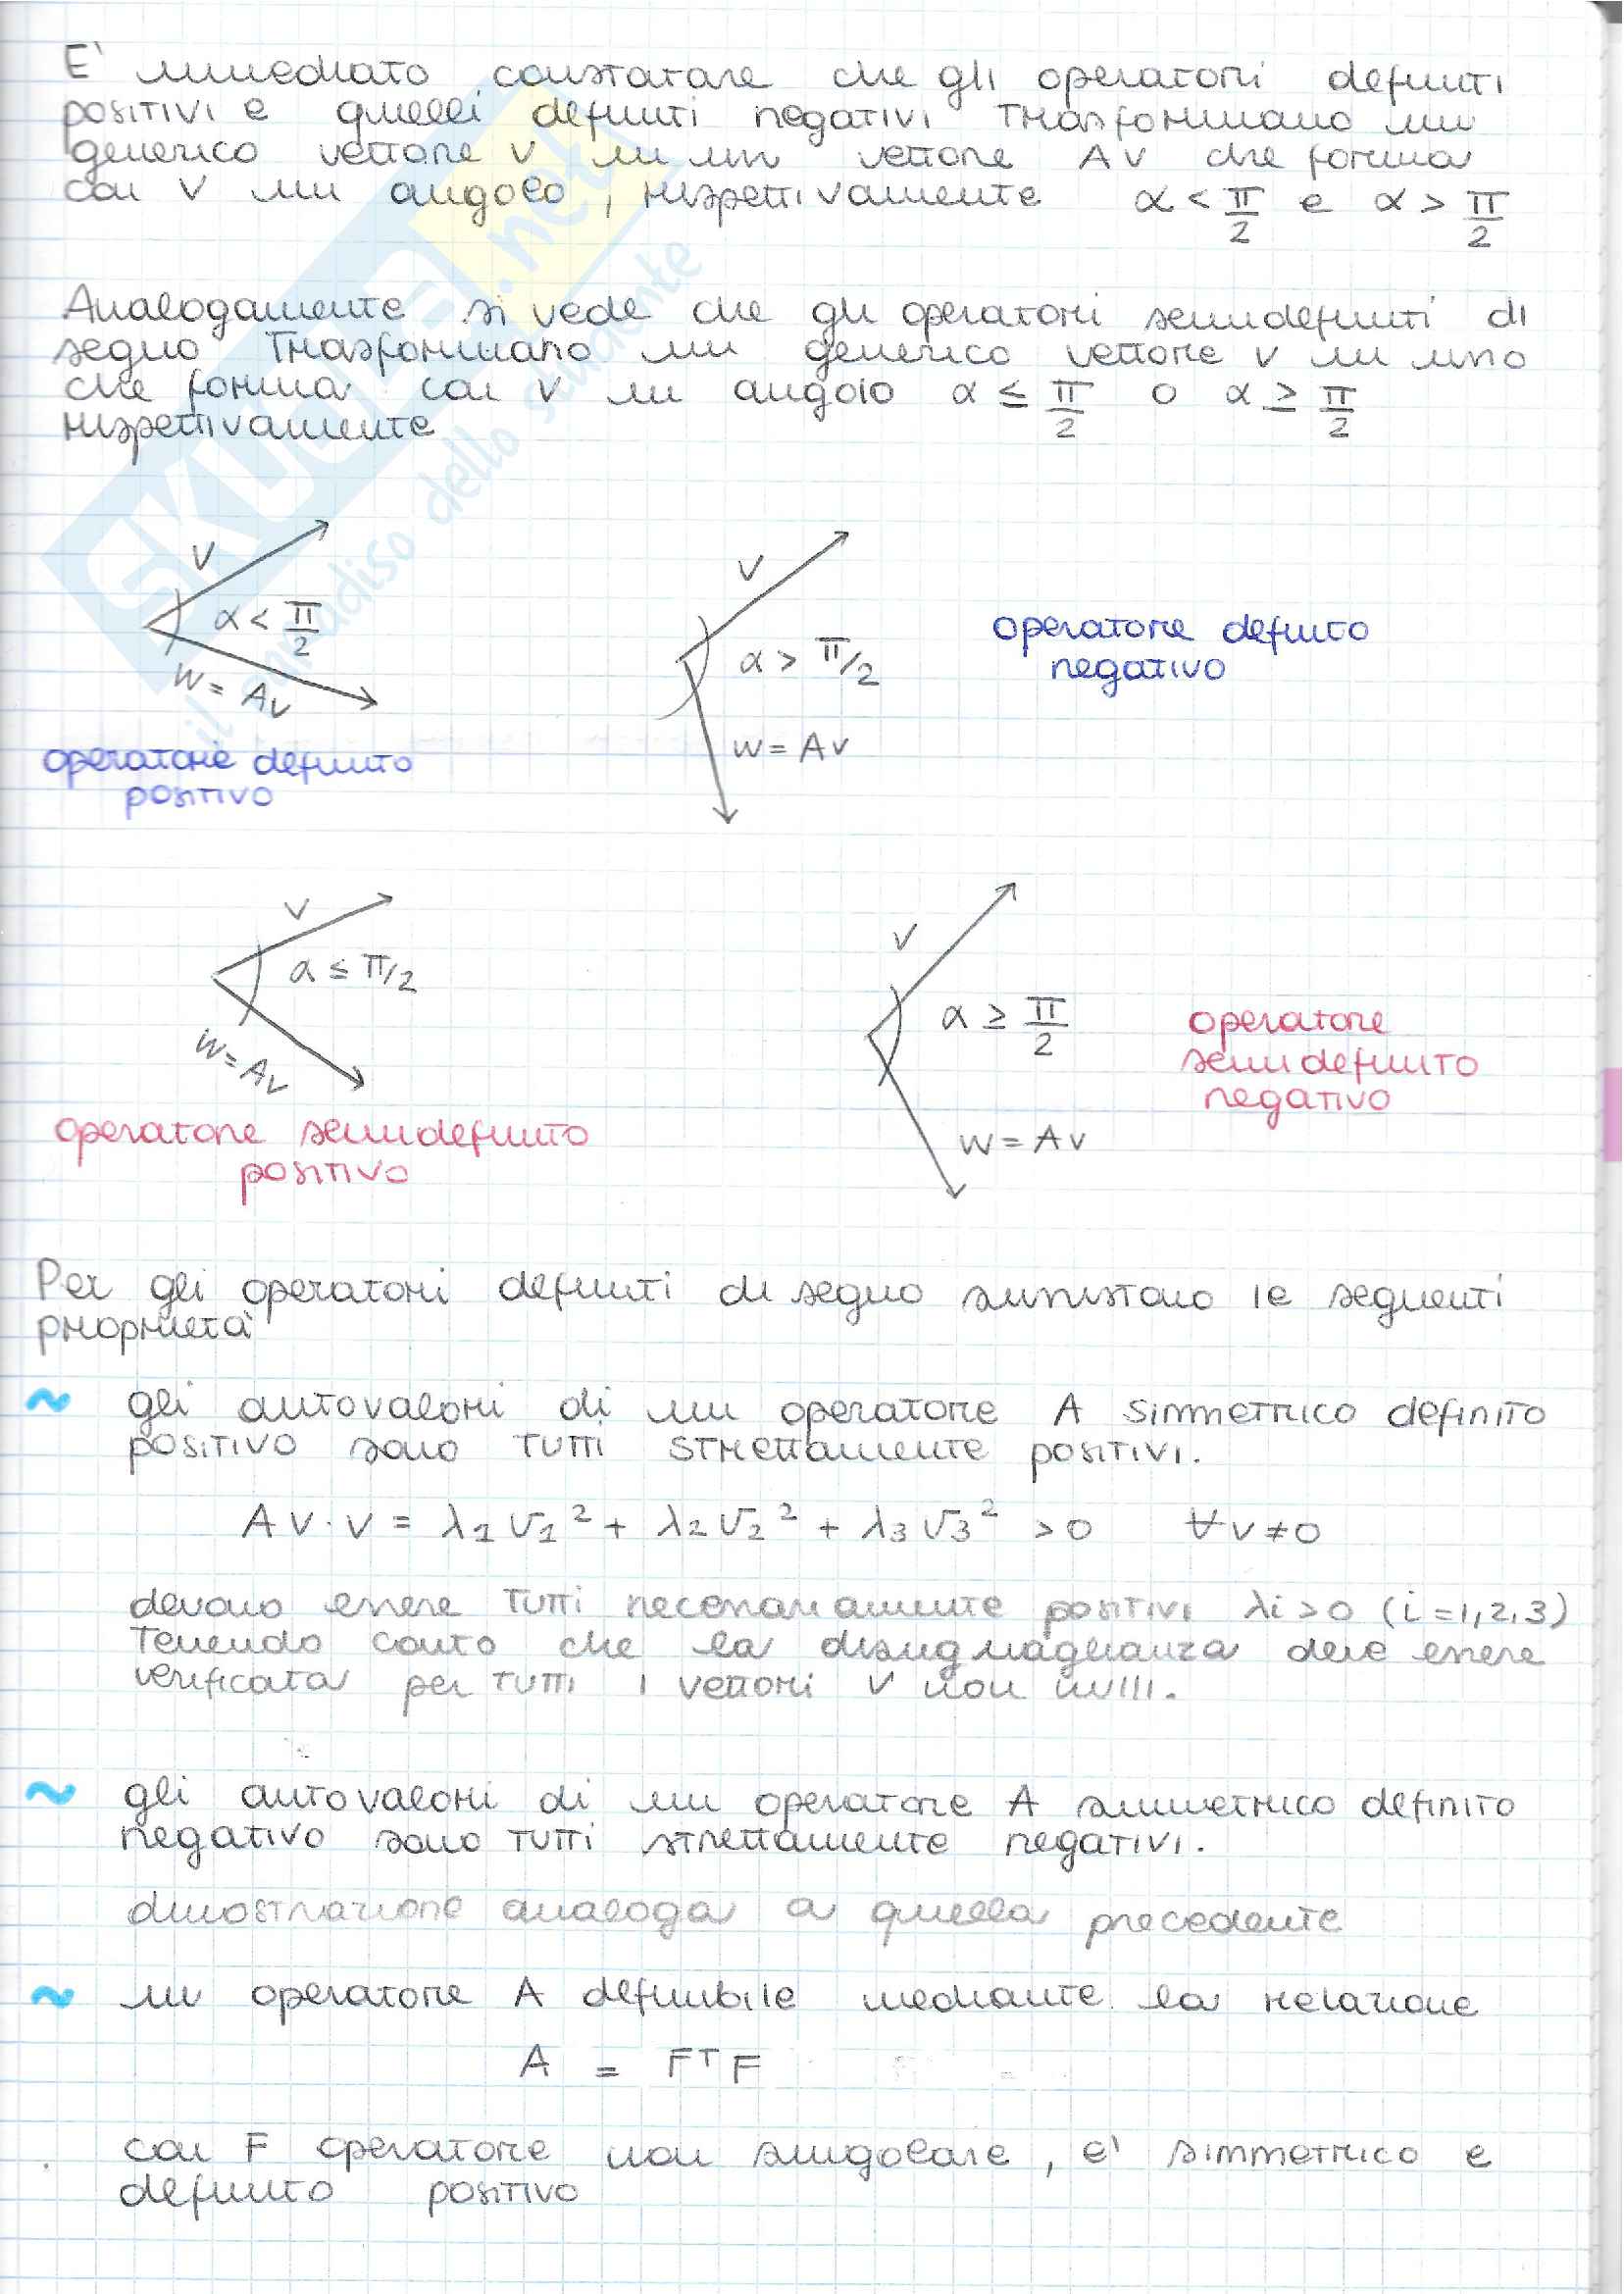 E' immediato constatare che gli operatori definiti
positivi e quelli definiti negativi trasformano un
generico vettore v in un vettore Av che forma
con v un angolo, rispettivamente α < π/2 e α > π/2
Analogamente si vede che gli operatori semidefiniti di
segno trasformano un generico vettore v in uno
che forma con v un angolo α ≤ π/2 o α ≥ π/2
rispettivamente
v
α < π/2
w = Av
operatore definito
positivo
v
α > π/2
w = Av
operatore definito
negativo
v
α ≤ π/2
w = Av
operatore semidefinito
positivo
v
α ≥ π/2
w = Av
operatore
semidefinito
negativo
Per gli operatori definiti di segno sussistono le seguenti
proprietà
~ gli autovalori di un operatore A simmetrico definito
positivo sono tutti strettamente positivi.
Av·v = λ1 v1² + λ2 v2² + λ3 v3² > 0 ∀v≠0
devono essere tutti necessariamente positivi λi > 0 (i=1,2,3)
Tenendo conto che la disuguaglianza deve essere
verificata per tutti i vettori v non nulli.
~ gli autovalori di un operatore A simmetrico definito
negativo sono tutti strettamente negativi.
dimostrazione analoga a quella precedente
~ un operatore A definibile mediante la relazione
A = FᵀF
con F operatore non singolare, e' simmetrico e
definito positivo
SKUOLA.net
il paradiso dello studente